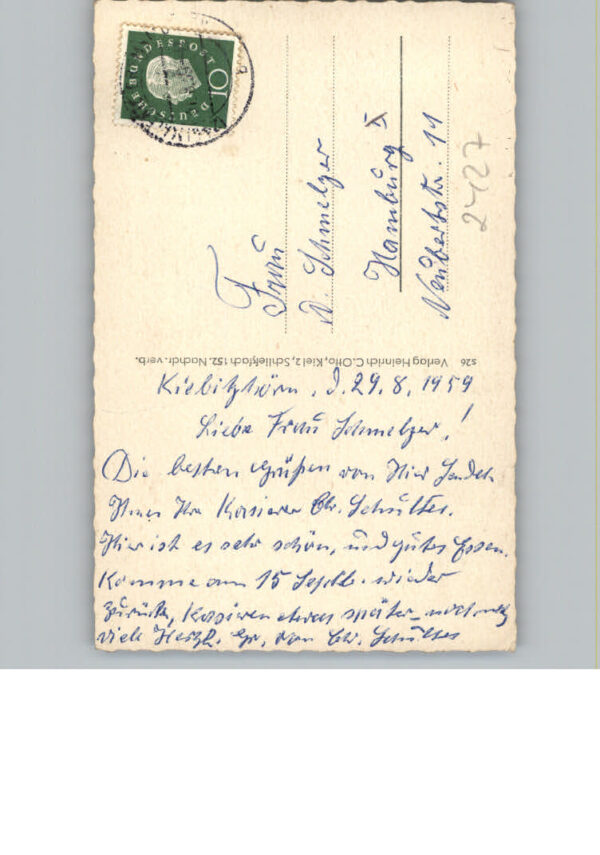 DEUTSCHE BUNDESPOST
10
Frau
D. Schmelzer
Hamburg X
Neubertstr. 11
2427
S26 Verlag Heinrich C. Otto, Kiel 2, Schließfach 152. Nachdr. verb.
Kiebitzhörn, d. 29.8.1959
Liebe Frau Schmelzer!
Die besten Grüßen von Hier Sendet
Ihnen Ihr Kassierer Chr. Schultes.
Hier ist es sehr schön, und gutes Essen.
Komme am 15 Septb. wieder
zurück, Kassieren etwas später
viele Herzl. Gr. von Chr. Schultes